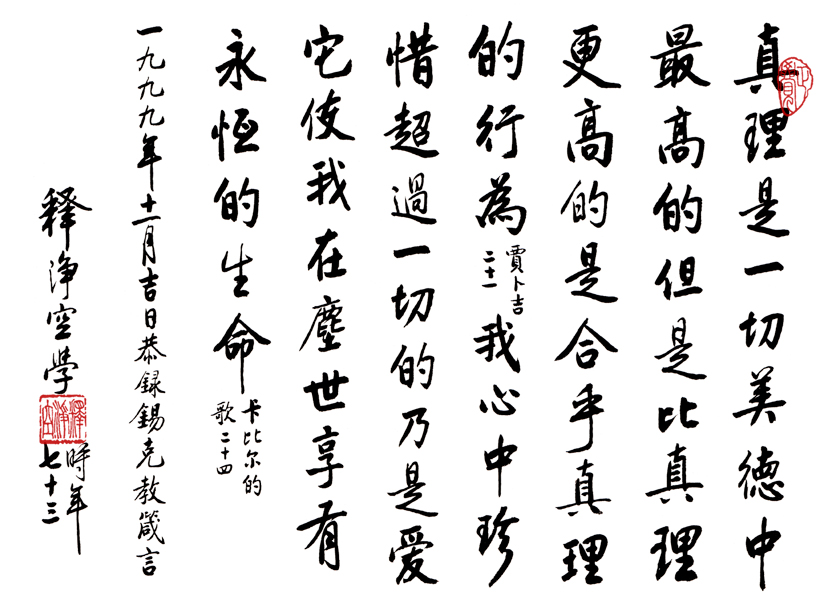 真理是一切美德中
最高的但是比真理
更高的是合乎真理
的行為賈卜吉二十一我心中珍
惜超過一切的乃是愛
它使我在塵世享有
永恆的生命卡比尔的歌二十四
一九九九年十一月吉日恭録錫克教箴言
釋淨空學時年七十三